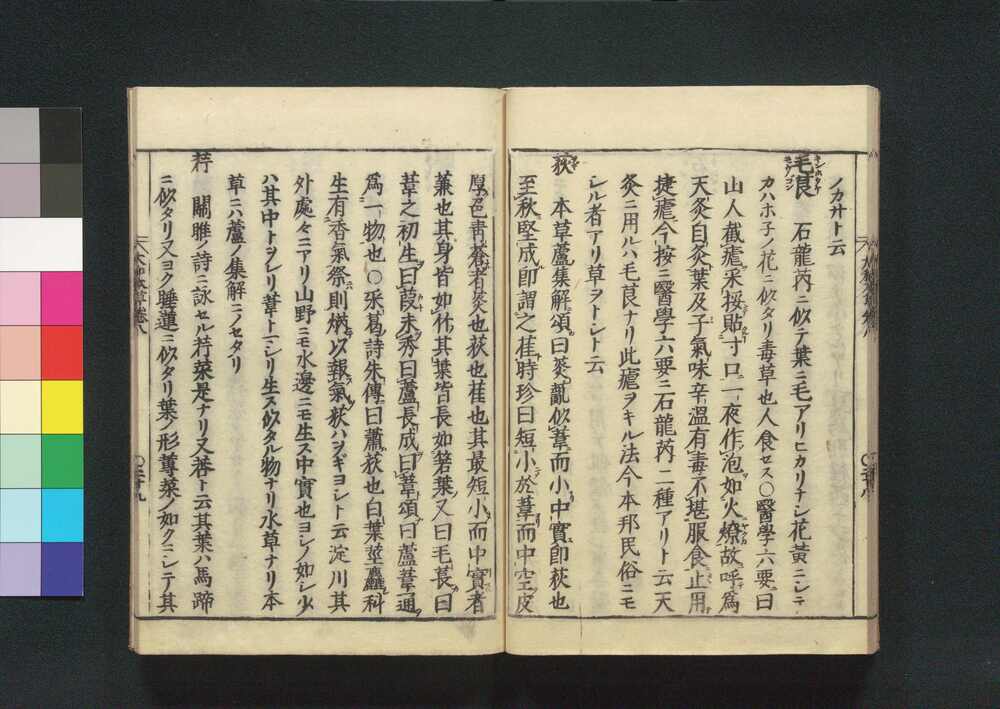 ノカ廾ト云
毛茛 石龍芮ニ似テ葉ニ毛アリヒカリナシ花黃ニシテ
カハホ子ノ花ニ似タリ毒草也人食セス○醫學六要曰
山人截瘧采挼貼寸口一夜作泡如火燎故呼爲
天灸自灸葉及子氣味辛溫有毒不堪服食止用
捷瘧今按ニ醫學六要ニ石龍芮二種アリト云天
灸ニ用ルハ毛茛ナリ此瘧ヲキル法今本邦民俗ニモ
シル者アリ草ヲトシト云
荻 本草蘆集解頌曰菼薍似葦而小中實卽荻也
至秋堅成卽謂之萑時珍曰短小於葦而中空皮
厚色青蒼者菼也荻也萑也其最短小而中實者
蒹也其身皆如竹其葉皆長如箬葉又曰毛萇曰
葦之初生曰葭未秀曰蘆長成曰葦頌曰蘆葦通
爲一物也○采葛詩朱傳曰蕭荻也白葉莖麤科
生有香氣祭則焫以報氣荻ハヲギヨシト云淀川其
外處々ニアリ山野ニモ水邊ニモ生ス中實也ヨシノ如シ少
ハ其中トヲレリ葦ト一シリ生ス似タル物ナリ水草ナリ本
草ニハ蘆ノ集解ニノセタリ
荇 關雎ノ詩ニ詠セル荇菜是ナリ又莕ト云其葉ハ馬蹄
ニ似タリ又ヨク睡蓮ニ似タリ葉ノ形蓴菜ノ如クニシテ其